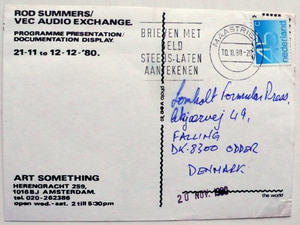 ROD SUMMERS/
VEC AUDIO EXCHANGE.
PROGRAMME PRESENTATION/
DOCUMENTATION DISPLAY.
21-11 to 12-12-'80.
BRIEVEN MET
GELD
STEEDS-LATEN
AANTEKENEN
MAASTRICHT
45
nederland
Lomholt Formular Press,
49,
FALLING
DK-8300 ODDER
DENMARK
20 NOV. 1980
ART SOMETHING
HERENGRACHT 259,
1016 BJ AMSTERDAM.
tel. 020-262386
open wed.-sat. 2 till 5:30pm
the world